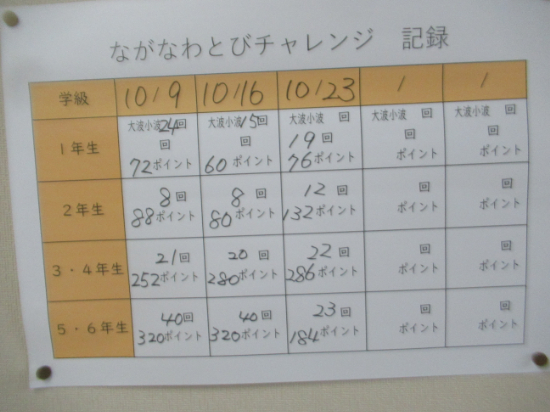 ながなわとびチャレンジ 記録
学級 10/9 10/16 10/23 / /
1年生 大波小波24回 大波小波15回 大波小波 回 大波小波 回 大波小波 回
回 回 19回 回 回
72ポイント 60ポイント 76ポイント ポイント ポイント
2年生 8回 8回 12回 回 回
88ポイント 80ポイント 132ポイント ポイント ポイント
3・4年生 21回 20回 22回 回 回
252ポイント 280ポイント 286ポイント ポイント ポイント
5・6年生 40回 40回 23回 回 回
320ポイント 320ポイント 184ポイント ポイント ポイント